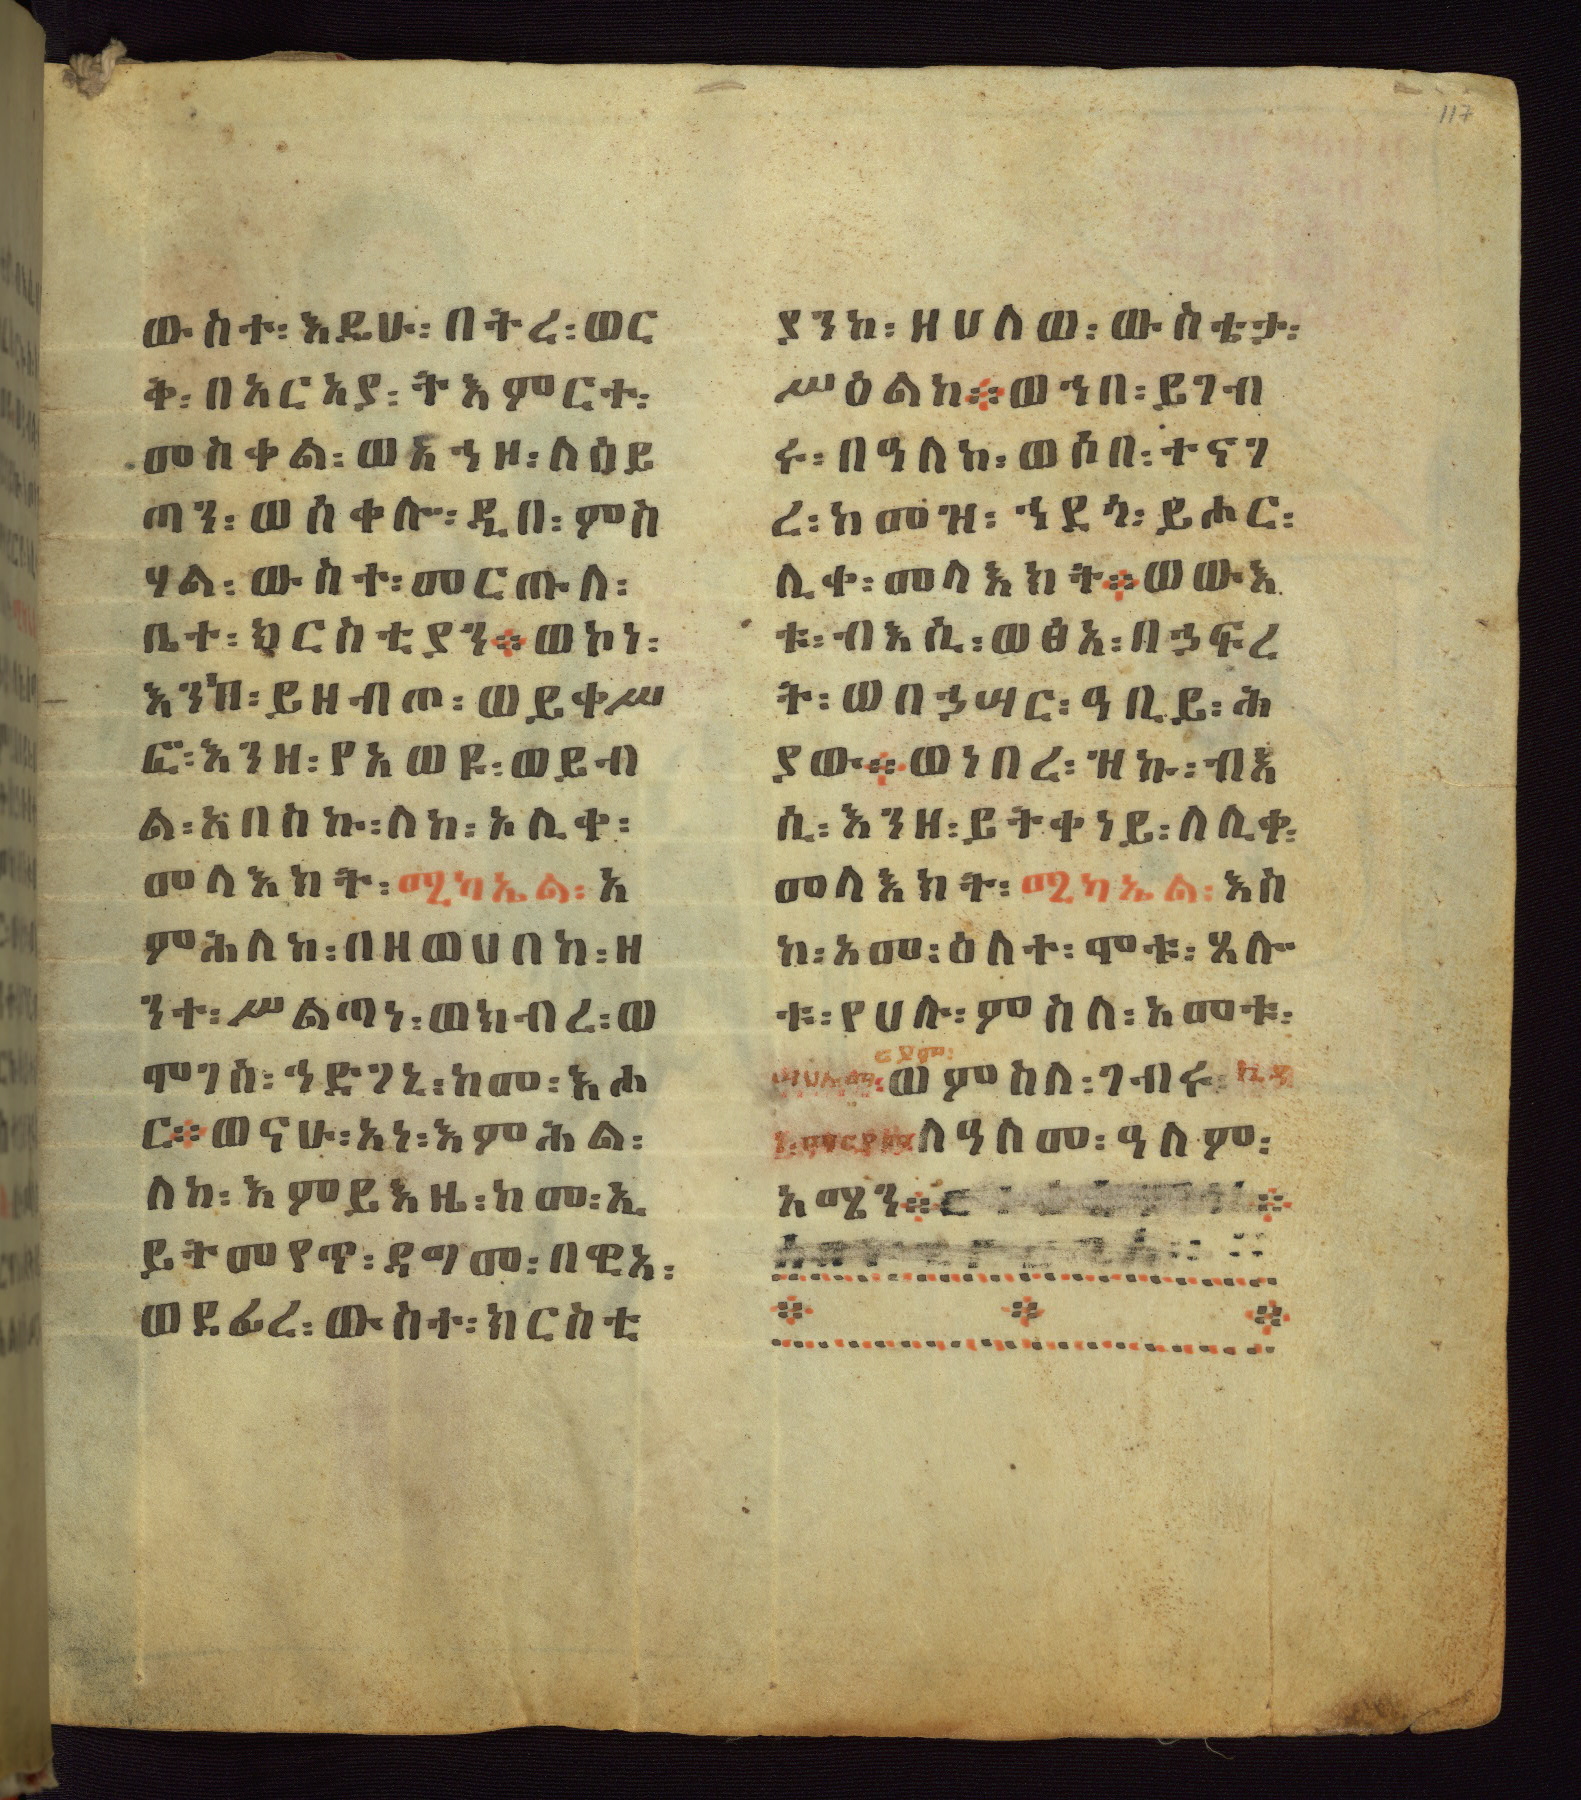 117
ውስተ፡ እዴሁ፡ በትረ፡ ወር
ቅ፡ በአርአያ፡ ትእምርተ፡
መስቀል፡ ወእኂዞ፡ ለዕይ
ጣን፡ ወሰቀሎ፡ ዲበ፡ ምስ
ሃል፡ ውስተ፡ መርጡለ፡
ቤተ፡ ክርስቲያን፨ ወኮነ፡
እንዘ፡ ይዘብጦ፡ ወይቀሥ
ፎ፡ እንዘ፡ የአወዩ፡ ወይብ
ል፡ አበስኩ፡ ለከ፡ ኦሊቀ፡
መላእክት፡ ሚካኤል፡ አ
ምሕለከ፡ በዘወሀበከ፡ ዘ
ንተ፡ ሥልጣነ፡ ወክብረ፡ ወ
ሞገሰ፡ ኅድገኒ፡ ከመ፡ እሖ
ር፨ ወናሁ፡ አነ፡ እምሕል፡
ለከ፡ እምይእዜ፡ ከመ፡ ኢ
ይትመየጥ፡ ዳግመ፡ በዊአ፡
ወደፊረ፡ ውስተ፡ ክርስቲ
ያንከ፡ ዘሀለወ፡ ውስቴታ፡
ሥዕልከ፨ ወኀበ፡ ይገብ
ሩ፡ በዓለከ፡ ወሶበ፡ ተናገ
ረ፡ ከመዝ፡ ኀደጎ፡ ይሖር፡
ሊቀ፡ መላእክት፨ ወውእ
ቱ፡ ብእሲ፡ ወፅአ፡ በኃፍረ
ት፡ ወበኃሣር፡ ዓቢይ፡ ሕ
ያው፨ ወነበረ፡ ዝኩ፡ ብእ
ሲ፡ እንዘ፡ ይትቀነይ፡ ለሊቀ፡
መላእክት፡ ሚካኤል፡ እስ
ከ፡ አመ፡ ዕለተ፡ ሞቱ፡ ጸሎ
ቱ፡ የሀሉ፡ ምስለ፡ አመቱ፡
ወምስለ፡ ገብሩ፡
ለዓለመ፡ ዓለም፡
አሜን፨